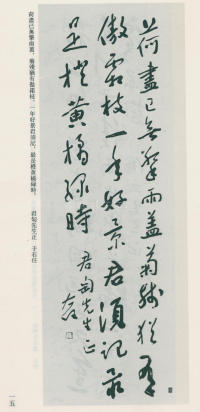 荷盡已無擎雨蓋菊殘猶有
傲霜枝一年好景君須記最
是橙黃橘綠時
君匋先生正
右任
荷盡已無擎雨蓋，菊殘猶有傲霜枝。一年好景君須記，最是橙黃橘綠時。
君匋先生正　于右任
一五